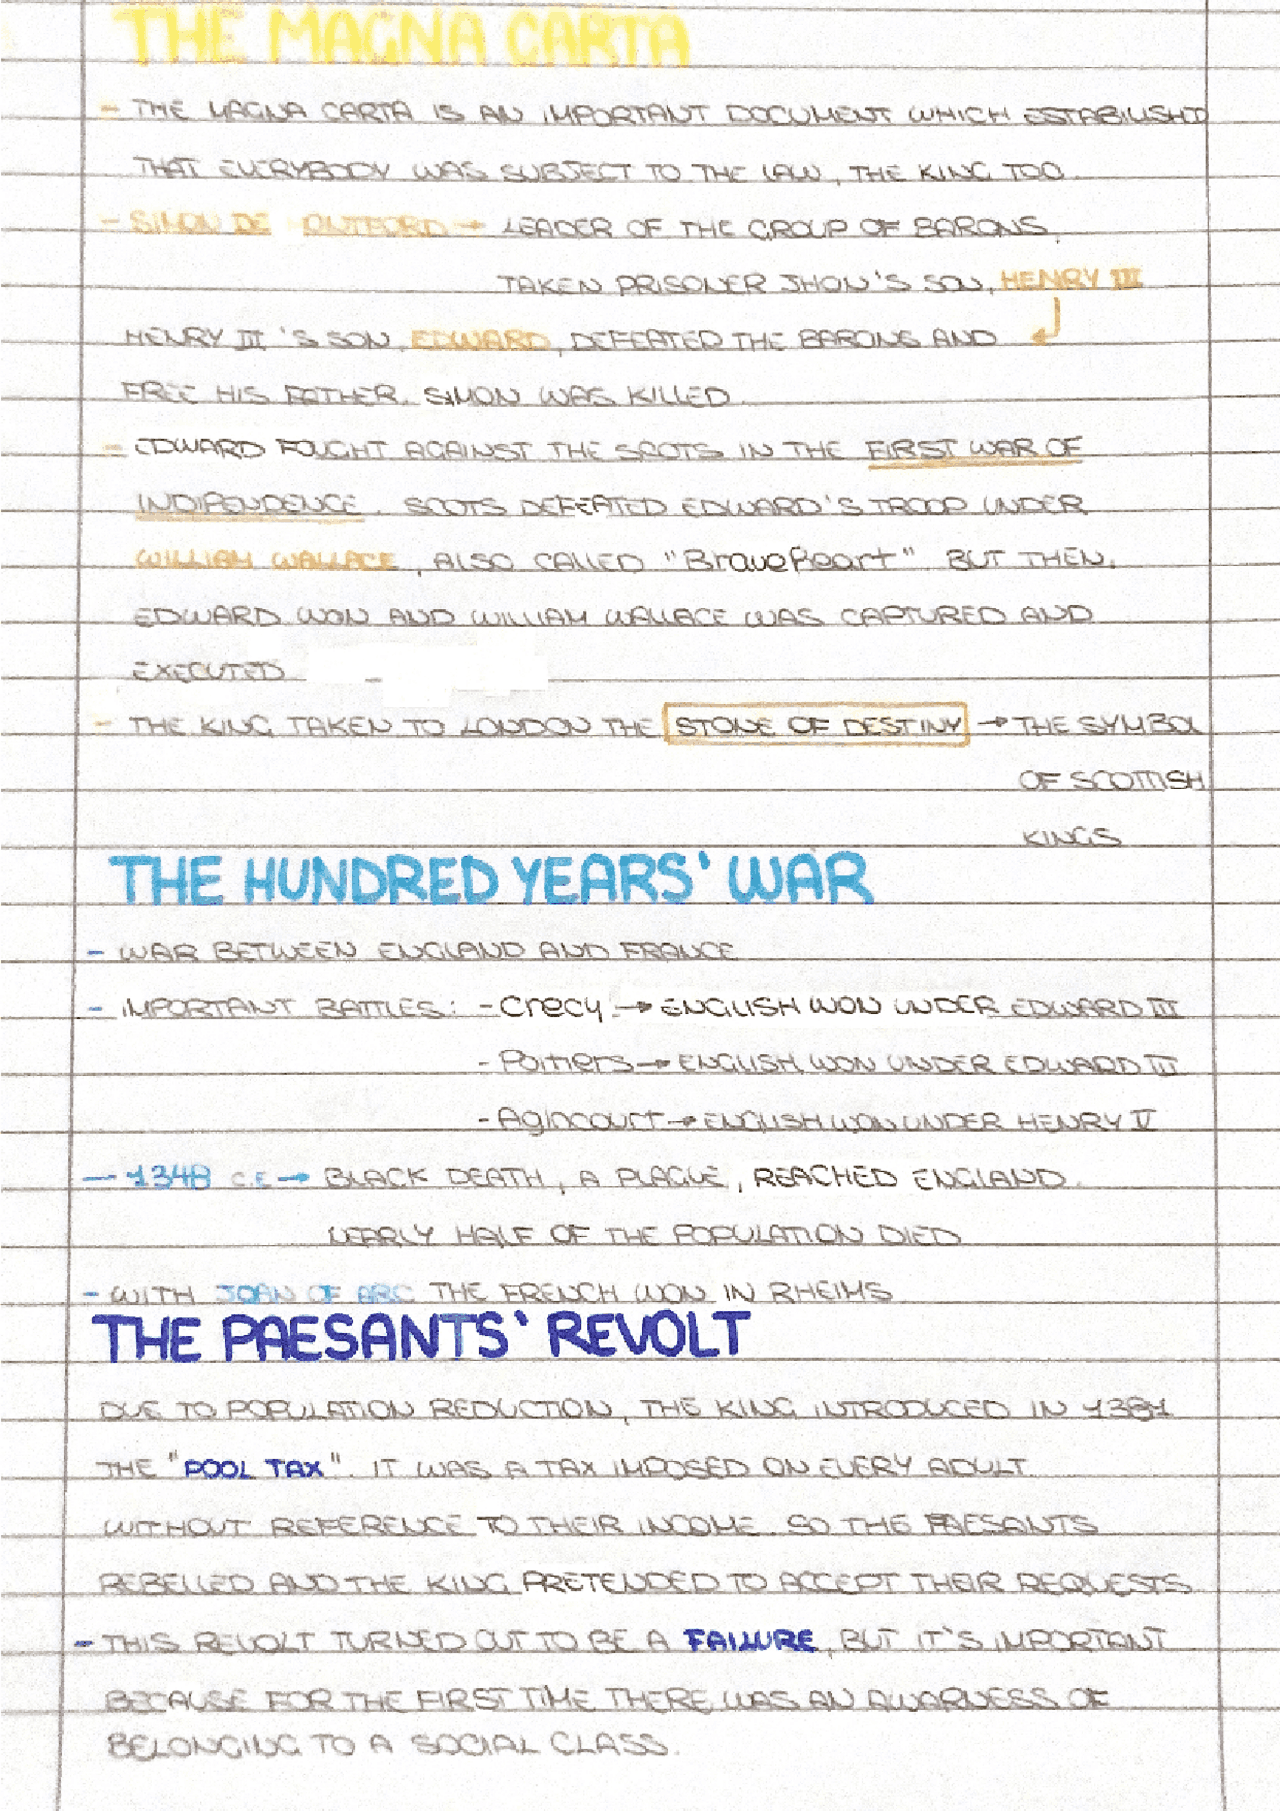 THE MAGNA CARTA
- THE MAGNA CARTA IS AN IMPORTANT DOCUMENT WHICH ESTABILISHD
THAT EVERYBODY WAS SUBJECT TO THE LAW, THE KING TOO.
- SIMON DE ONTFORD → LEADER OF THE GROUP OF BARONS,
TAKEN PRISONER JHON'S SON, HENRY III
HENRY III 'S SON, EDWARD, DEFEATED THE BARONS AND
FREE HIS FATHER. SIMON WAS KILLED.
- EDWARD FOUGHT AGAINST THE SCOTS IN THE FIRST WAR OF
INDIPENDENCE. SCOTS DEFEATED EDWARD'S TROOP UNDER
WILLIAM WALLACE, ALSO CALLED "BraveHeart". BUT THEN,
EDWARD WON AND WILLIAM WALLACE WAS CAPTURED AND
EXECUTED
- THE KING TAKEN TO LONDON THE STONE OF DESTINY → THE SYMBOL
OF SCOTTISH
KINGS
THE HUNDRED YEARS' WAR
- WAR BETWEEN ENGLAND AND FRANCE
- IMPORTANT BATTLES: - Crecy → ENGLISH WON UNDER EDWARD III
- Poitiers → ENGLISH WON UNDER EDWARD III
- Agincourt → ENGLISH WON UNDER HENRY V
- 1348 C.E → BLACK DEATH, A PLAGUE, REACHED ENGLAND.
NEARLY HALF OF THE POPULATION DIED
- WITH JOAN OF ARC THE FRENCH WON IN RHEIMS
THE PAESANTS' REVOLT
DUE TO POPULATION REDUCTION, THE KING INTRODUCED IN 1381
THE "POOL TAX". IT WAS A TAX IMPOSED ON EVERY ADULT
WITHOUT REFERENCE TO THEIR INCOME. SO THE PAESANTS
REBELLED AND THE KING PRETENDED TO ACCEPT THEIR REQUESTS
- THIS REVOLT TURNED OUT TO BE A FAILURE, BUT IT'S IMPORTANT
BECAUSE FOR THE FIRST TIME THERE WAS AN AWARNESS OF
BELONGING TO A SOCIAL CLASS.